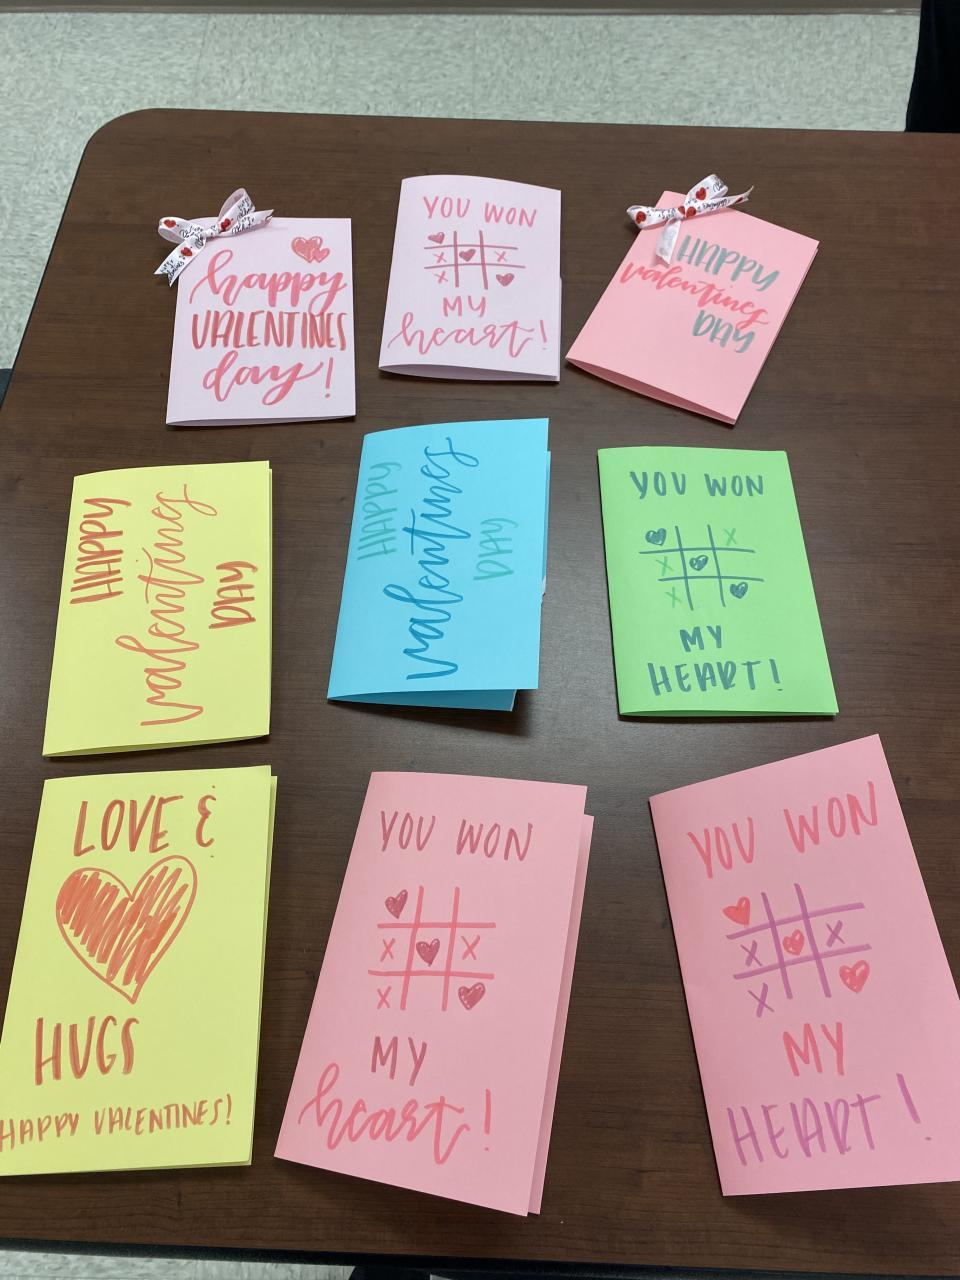 happy
VALENTINES
day!
YOU WON
X X
X
MY
heart!
HAPPY
valentines
DAY
HAPPY
valentines
DAY
HAPPY
valentines
DAY
YOU WON
X
X
X
MY
HEART!
LOVE &
HUGS
HAPPY VALENTINES!
YOU WON
X X
X
MY
heart!
YOU WON
X X
X
MY
HEART!